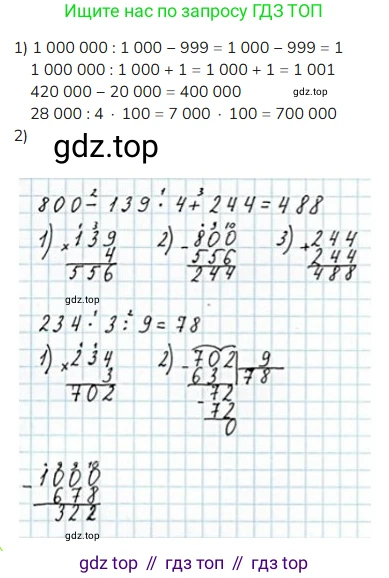 Ищите нас по запросу ГДЗ ТОП
1) 1 000 000 : 1 000 – 999 = 1 000 – 999 = 1
1 000 000 : 1 000 + 1 = 1 000 + 1 = 1 001
420 000 – 20 000 = 400 000
28 000 : 4 · 100 = 7 000 · 100 = 700 000
2)
gdz.top
2 1 3
800 - 139 · 4 + 244 = 488
1) × 139 2) - 800 3) + 244
4 556 244
556 244 488
gdz.top
1 2
234 · 3 : 9 = 78
1) × 234 2) - 702 9
3 63 78
702 - 72
72
0
- 1000
678
322
gdz.top
gdz.top // гдз топ // gdz.top